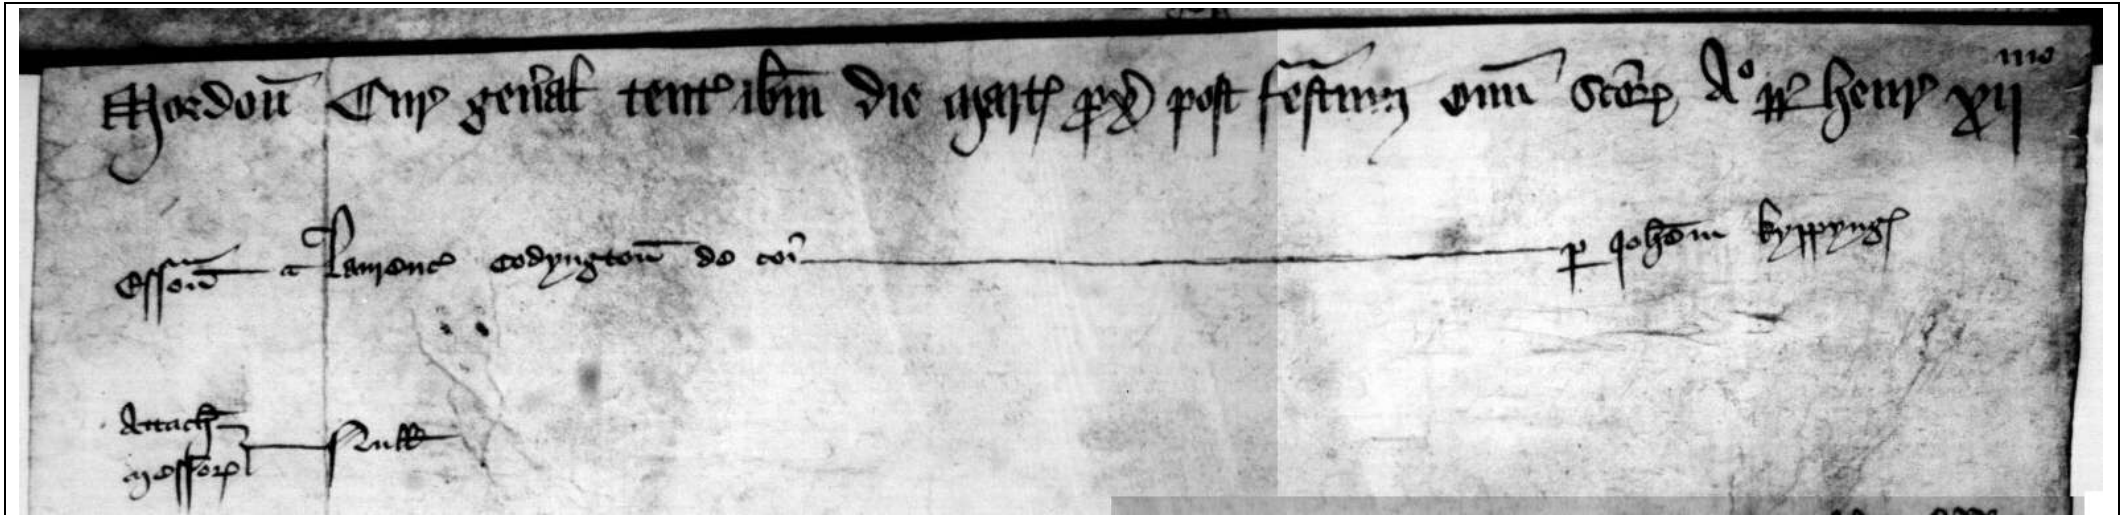 Mordon Cur genal tent ibm die Mart px post festum omn scor A° pp henr xij mo
Esson Laurenc Codyngton de coi p Johem kyppyng
Attach
Messor Null